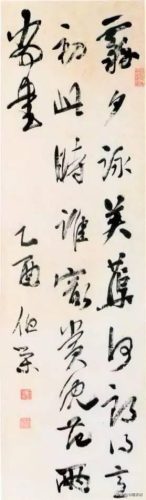 霧夕詠芙蕖何郎得意
初此時誰最賞沈范兩
尚書
乙酉